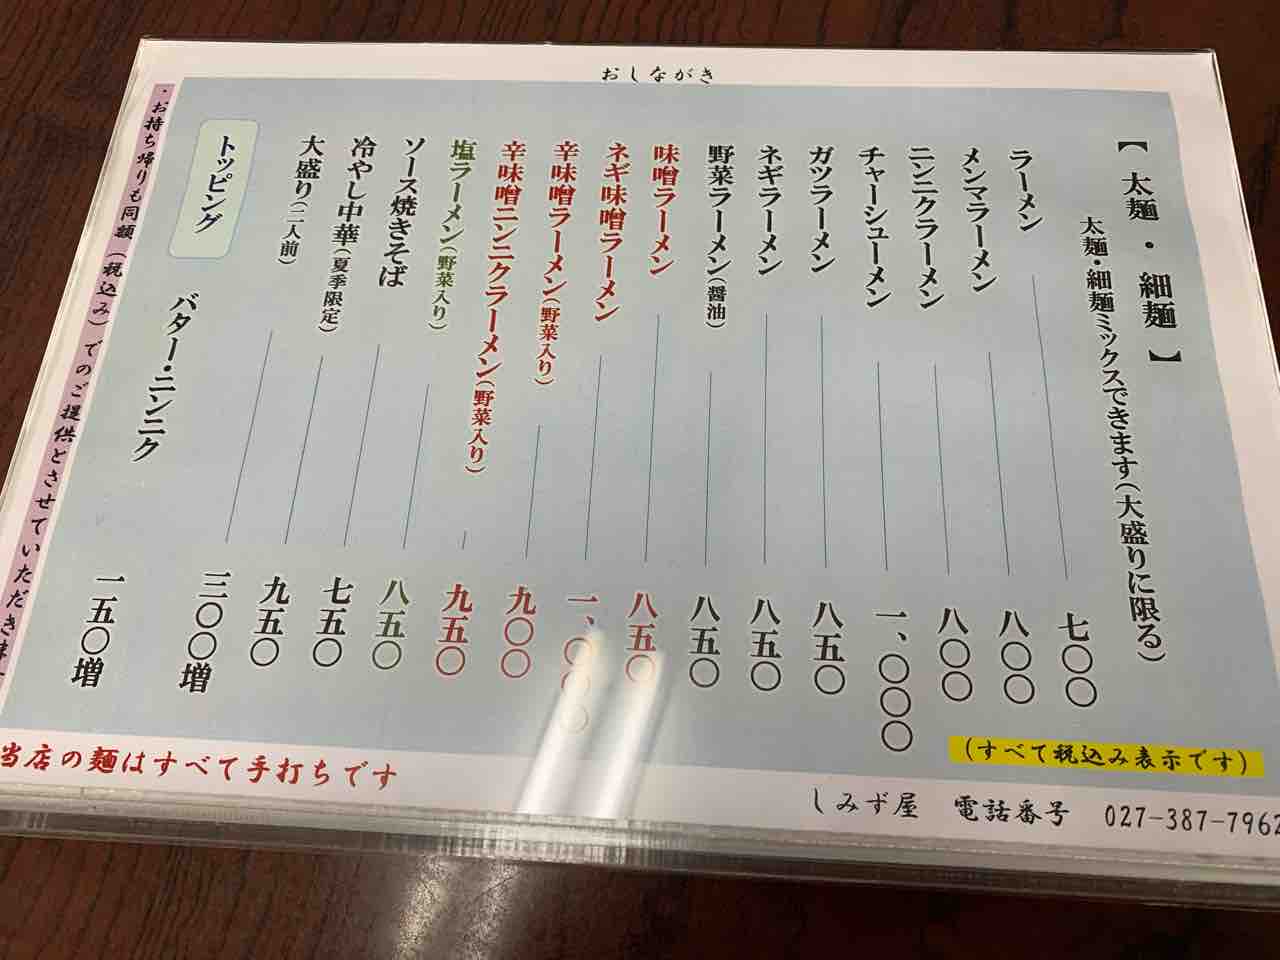 おしながき
【 太麺・細麺 】
太麺・細麺ミックスできます(大盛りに限る)
ラーメン 七〇〇
メンマラーメン 八〇〇
ニンニクラーメン 八〇〇
チャーシューメン 一、〇〇〇
ガツラーメン 八五〇
ネギラーメン 八五〇
野菜ラーメン(醤油) 八五〇
味噌ラーメン 八五〇
ネギ味噌ラーメン 一、〇〇〇
辛味噌ラーメン(野菜入り) 九〇〇
辛味噌ニンニクラーメン(野菜入り) 九五〇
塩ラーメン(野菜入り) 八五〇
ソース焼きそば 七五〇
冷やし中華(夏季限定) 九五〇
大盛り(二人前) 三〇〇増
トッピング
バター・ニンニク 一五〇増
・お持ち帰りも同額(税込み)でのご提供とさせていただきま
(すべて税込み表示です)
当店の麺はすべて手打ちです
しみず屋 電話番号 027-387-7962